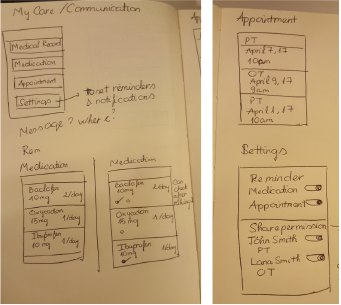 My Care / Communication
Medical Record
Medication
Appointment
Settings
to set reminders
& notifications
Message? where?
Rem
Medication
Baclofen
10mg 2/day
Oxycodon
15mg 1/day
Ibuprofen
10mg 1/day
Medication
Baclofen
10mg 2/day
Oxycodon
15mg 1/day
Ibuprofen
10mg 1/day
Can
check
after
Appointment
PT
April 7, 17
10am
OT
April 9, 17
9am
PT
April 1, 17
10am
Settings
Reminder
Medication
Appointment
Share permission
John Smith
PT
Lana Smith
OT